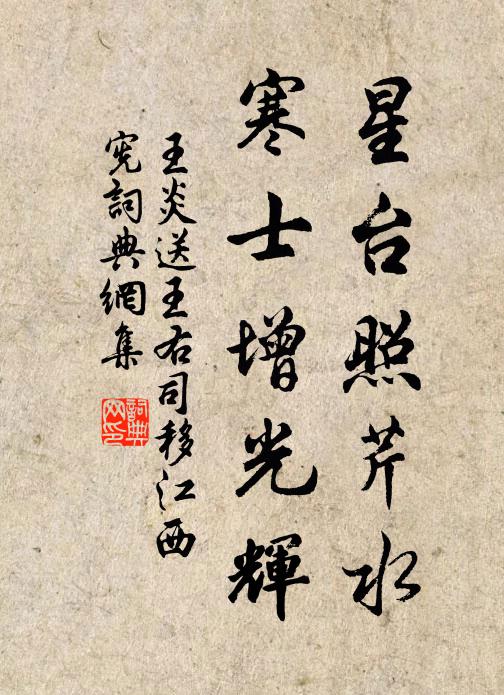 星台照芹水
寒士增光輝
王炎送王右司移江西
宪詞典網集
詞典
网印